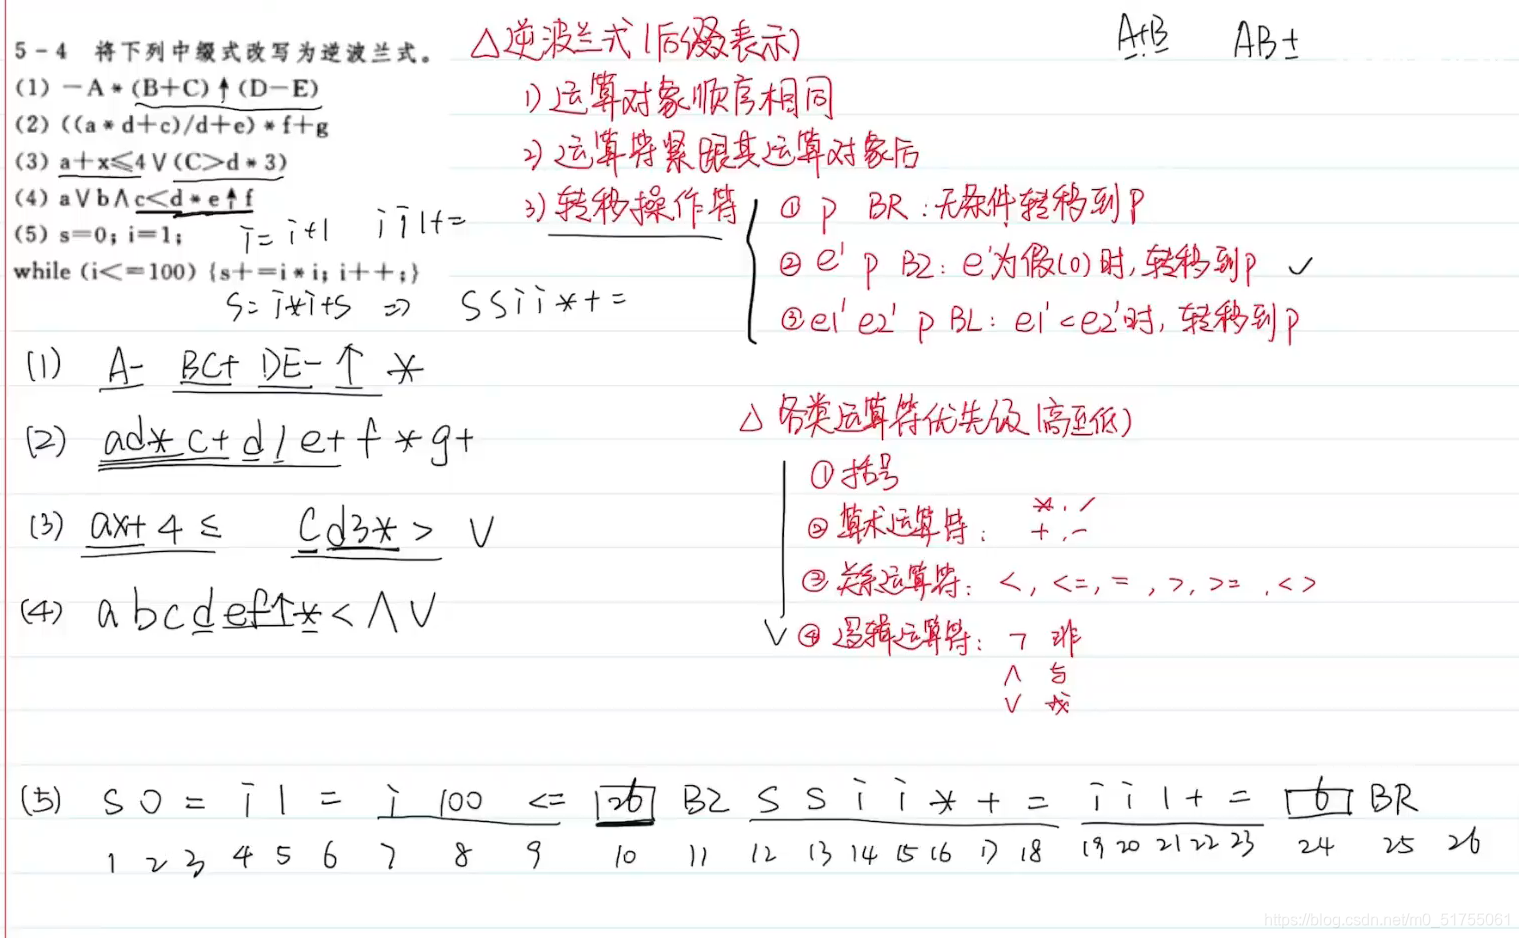 A+B AB+
5-4 将下列中缀式改写为逆波兰式。
(1) －A*(B+C)↑(D－E)
(2) ((a*d+c)/d+e)*f+g
(3) a+x≤4∨(C>d*3)
(4) a∨b∧c<d*e↑f
(5) s=0; i=1;
while (i<=100) {s+=i*i; i++;}
i=i+1 i i 1 + =
S=i*i+S ⇒ S S i i * + =
△逆波兰式(后缀表示)
1) 运算对象顺序相同
2) 运算符紧跟其运算对象后
3) 转移操作符
① p BR：无条件转移到p
② e' p BZ：e'为假(0)时,转移到p ✓
③ e1' e2' p BL：e1'<e2'时,转移到p
(1) A- BC+ DE- ↑ *
(2) ad* c+ d / e+ f * g+
(3) ax+ 4 ≤ C d3* > ∨
(4) a b c d e f ↑ * < ∧ ∨
△ 各类运算符优先级(高至低)
① 括号
② 算术运算符： *, /
+, -
③ 关系运算符： <, <=, =, >, >=, <>
④ 逻辑运算符： ¬ 非
∧ 与
∨ 或
(5) S 0 = i 1 = i 100 <= 26 BZ S S i i * + = i i 1 + = 6 BR
1 2 3 4 5 6 7 8 9 10 11 12 13 14 15 16 17 18 19 20 21 22 23 24 25 26
https://blog.csdn.net/m0_51755061